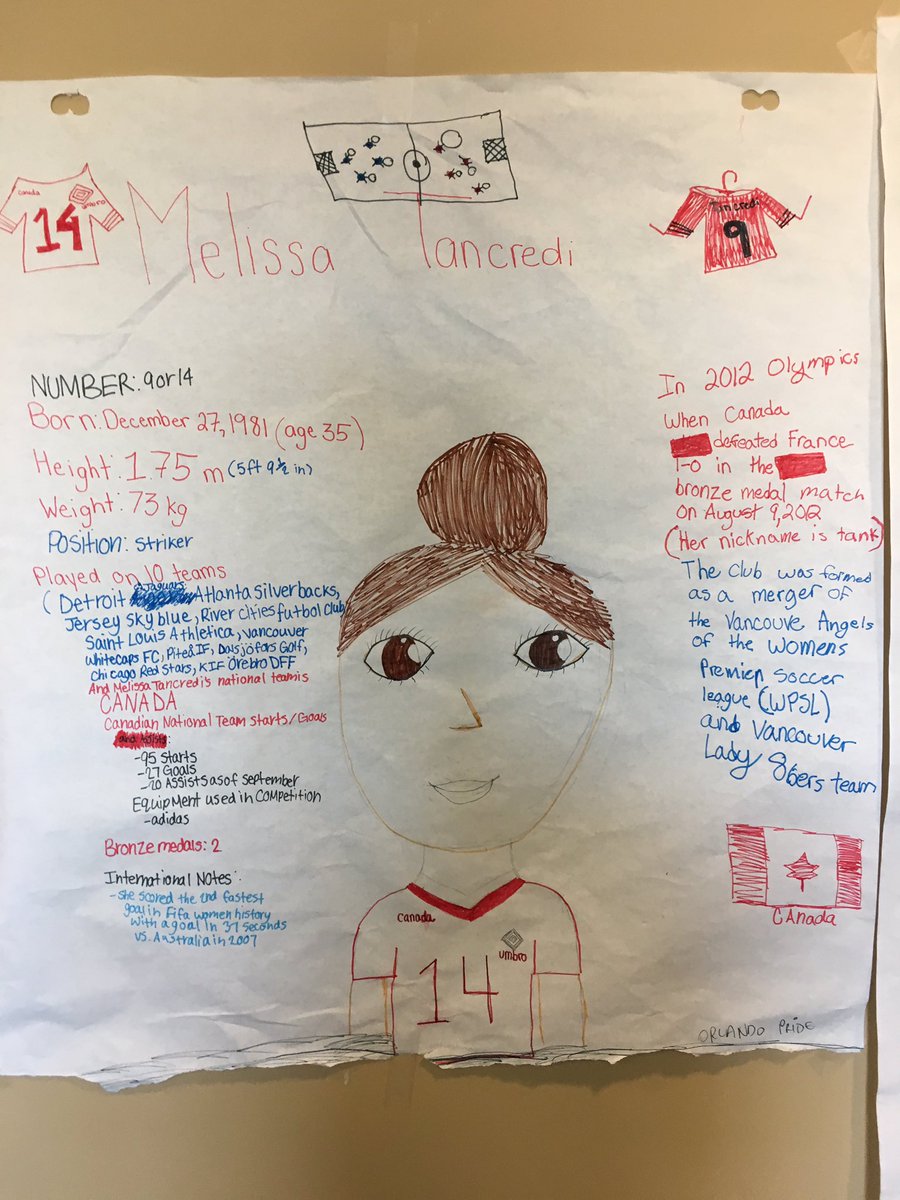 Canada
umbro
14
Melissa Tancredi
Tancredi
9
NUMBER: 9 or 14
Born: December 27, 1981 (age 35)
Height: 1.75 m (5ft 9 1/2 in)
Weight: 73 kg
Position: striker
Played on 10 teams
(Detroit Jaguars, Atlanta Silverbacks,
Jersey Sky blue, River cities futbol club,
Saint Louis Athletica, Vancouver
Whitecaps FC, Piteå IF, Dalsjöfors GoIF,
Chicago Red Stars, KIF Örebro DFF
And Melissa Tancredi's national team is
CANADA
Canadian National Team starts/Goals
and Assists:
-95 starts
-27 Goals
-20 Assists as of September
Equipment used in Competition
-adidas
Bronze medals: 2
International Notes:
-She scored the 2nd fastest
goal in Fifa women history
with a goal in 37 seconds
vs. Australia in 2007
In 2012 Olympics
When Canada
defeated France
1-0 in the
bronze medal match
on August 9, 2012
(Her nickname is tank)
The Club was formed
as a merger of
the Vancouve Angels
of the Womens
Premier Soccer
league (WPSL)
and Vancouver
Lady 86ers team
CAnada
Canada
umbro
14
ORLANDO PRIDE